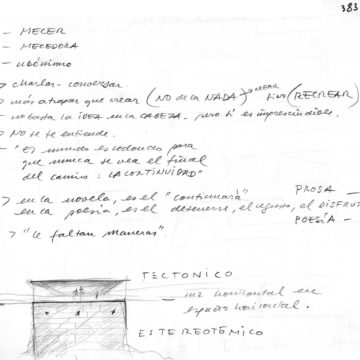 383
- MECER
- MECEDORA
- ubérrimo
> charlar - conversar
> más atrapar que crear (NO de la NADA) CREAR sino (RECREAR)
- no basta la idea en la CABEZA - pero sí es imprescindible.
> NO se te entiende.
- "El mundo es redondo para
que nunca se vea el final
del camino: LA CONTINUIDAD"
> en la novela, es el "continuará" PROSA -
en la poesía, es el detenerse, el regusto, el DISFRUT
POESÍA -
> "le faltan maneras"
TECTONICO
- luz horizontal en
espacio horizontal.
ESTEREOTÓMICO